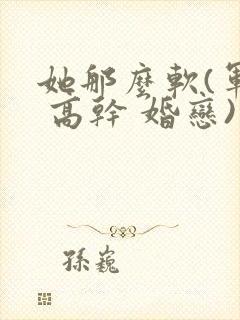 她那麼軟(軍
高幹 婚戀)
孫巍